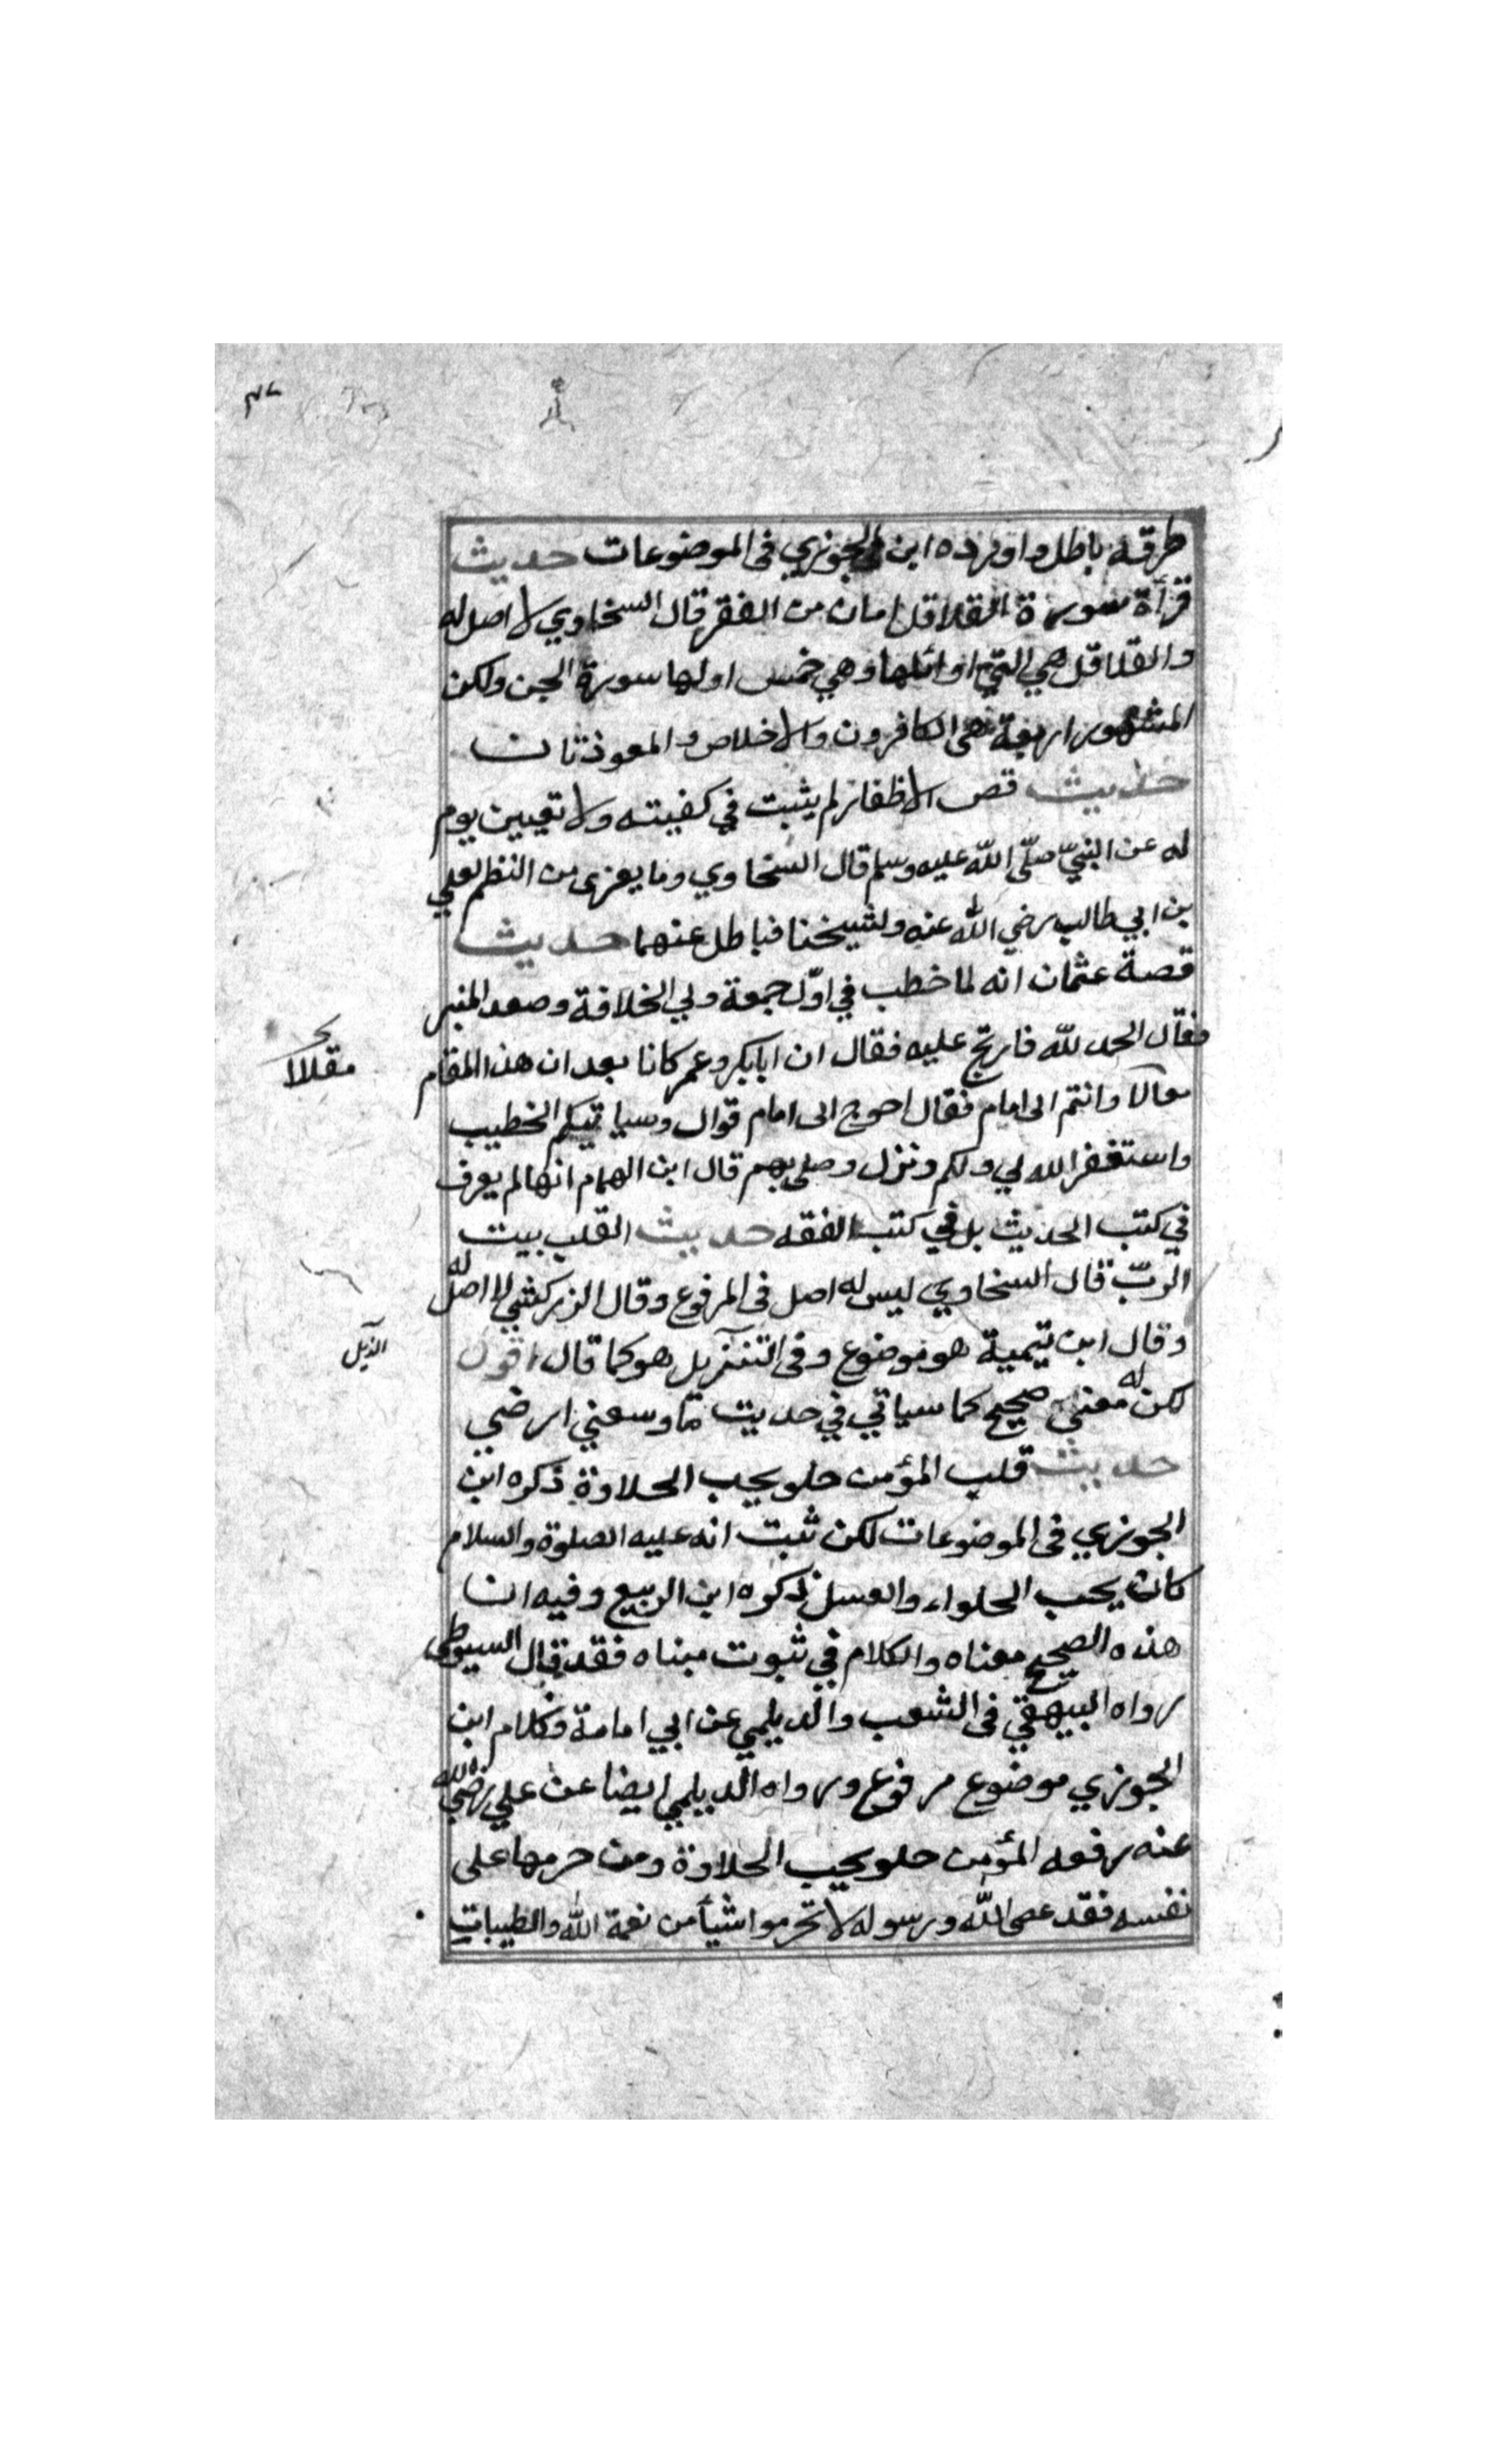 طرقه باطل واورده ابن الجوزي فى الموضوعات حديث
قرأة سورة القلاقل امان من الفقر قال السخاوي لا اصل له
والقلاقل هي التي اوائلها وهي خمس اولها سورة الجن ولكن
المشهور اربعة هى الكافرون والاخلاص والمعوذتان
حديث قص الاظفار لم يثبت في كفيته ولا تعيين يوم
له عن النبيّ صلّى اللّه عليه وسلم قال السخاوي وما يعزى من النظم لعلي
بن ابي طالب رضي اللّه عنه ولشيخنا فباطل عنهما حديث
قصة عثمان انه لما خطب في اوّل جمعة ولي الخلافة وصعد المنبر
فقال الحمد للّه فارتج عليه فقال ان ابابكر وعمر كانا بعدان هذا المقام
مقالا
مقالا وانتم الى امام فقال احوج الى امام قوال وسياتيكم الخطيب
واستغفر الله لي ولكم ونزل وصلى بهم قال ابن الهمام انها لم يعرف
في كتب الحديث بل في كتب الفقه حديث القلب بيت
الربّ قال السخاوي ليس له اصل فى المرفوع وقال الزركشي لا اصل له
وقال ابن تيمية هو موضوع وفى التنزيل هو كما قال اقول
الذيل
لكن له معنى صحيح كما سياتي في حديث ما وسعني ارضي
حديث قلب المؤمن حلو يحب الحلاوة ذكره ابن
الجوزي فى الموضوعات لكن ثبت انه عليه الصلوة والسلام
كان يحب الحلواء والعسل ذكره ابن الربيع وفيه ان
هذه الصحيح معناه والكلام في ثبوت مبناه فقد قال السيوطى
رواه البيهقي فى الشعب والديلمي عن ابي امامة وكلام ابن
الجوزي موضوع مرفوع ورواه الديلمي ايضا عن علي رضي الله
عنه رفعه المؤمن حلو يحب الحلاوة ومن حرمها على
نفسه فقد عصى اللّه ورسوله لا تحرموا شيأ من نعمة اللّه والطيبات